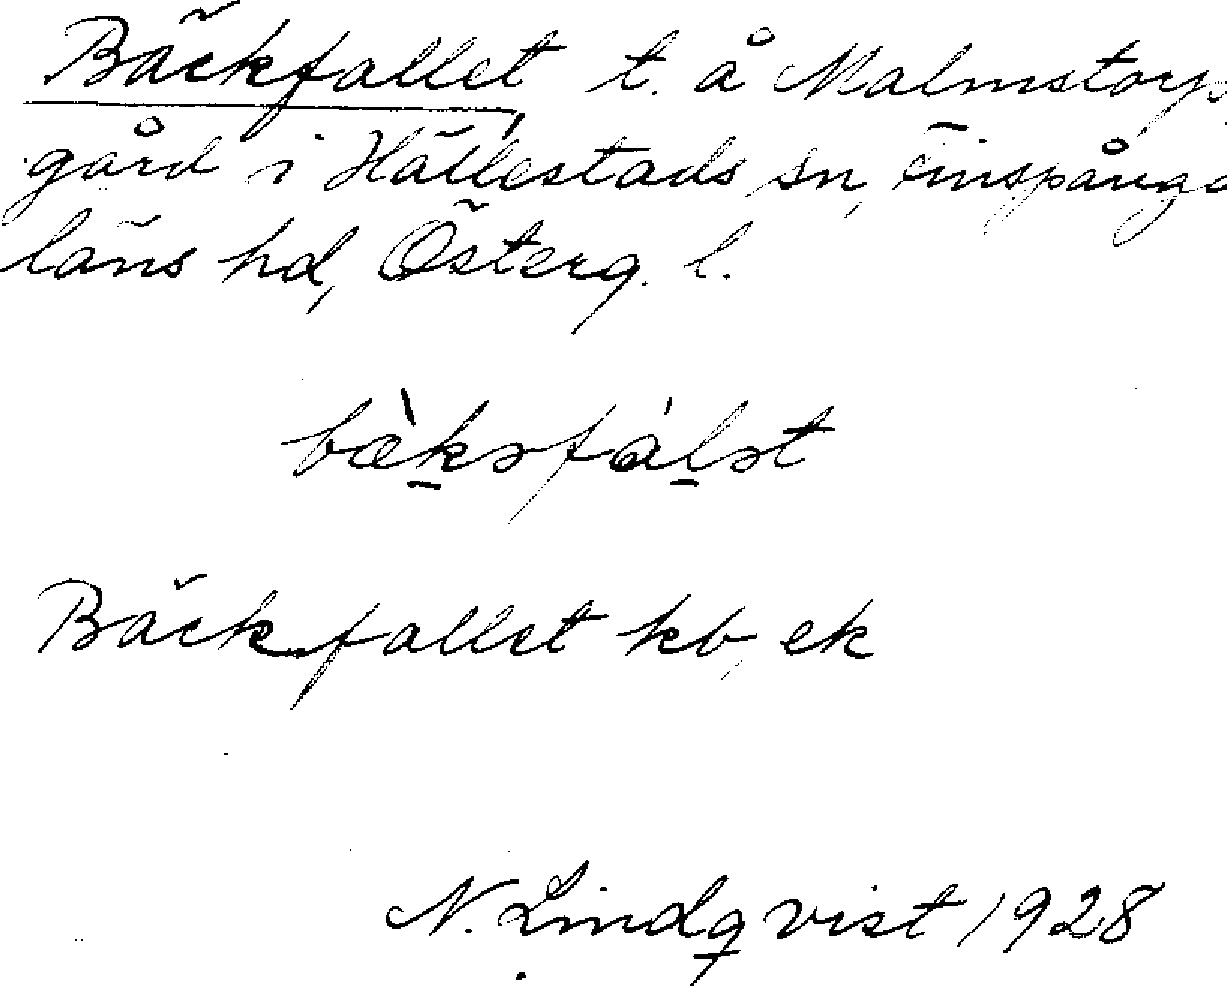 Bäckfallet, t. å Malmstorps
gård i Hällestads sn, Finspånga
läns hd, Österg. l.
bæ̀kəfálət
Bäckfallet kb, ek
N. Lindqvist 1928